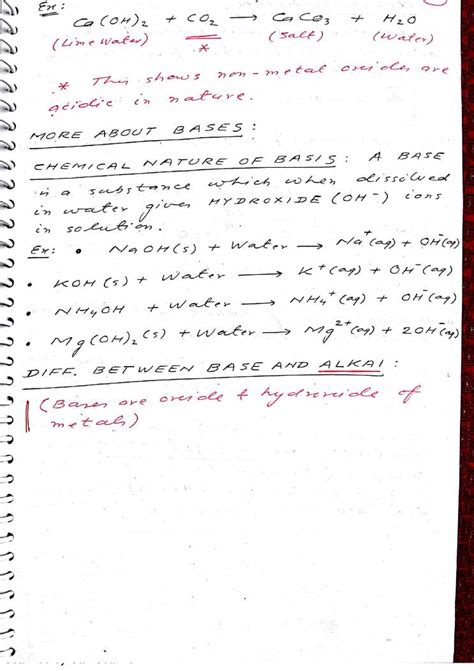 Ex:
Ca(OH)2 + CO2 → CaCO3 + H2O
(Lime water) * (Salt) (Water)
* This shows non-metal oxides are
acidic in nature.
MORE ABOUT BASES:
CHEMICAL NATURE OF BASIS: A BASE
is a substance which when dissolved
in water gives HYDROXIDE (OH⁻) ions
in solution.
Ex: • NaOH(s) + Water → Na⁺(aq) + OH⁻(aq)
• KOH(s) + Water → K⁺(aq) + OH⁻(aq)
• NH4OH + Water → NH4⁺(aq) + OH⁻(aq)
• Mg(OH)2(s) + Water → Mg²⁺(aq) + 2OH⁻(aq)
DIFF. BETWEEN BASE AND ALKAI:
(Bases are oxide & hydroxide of
metals)